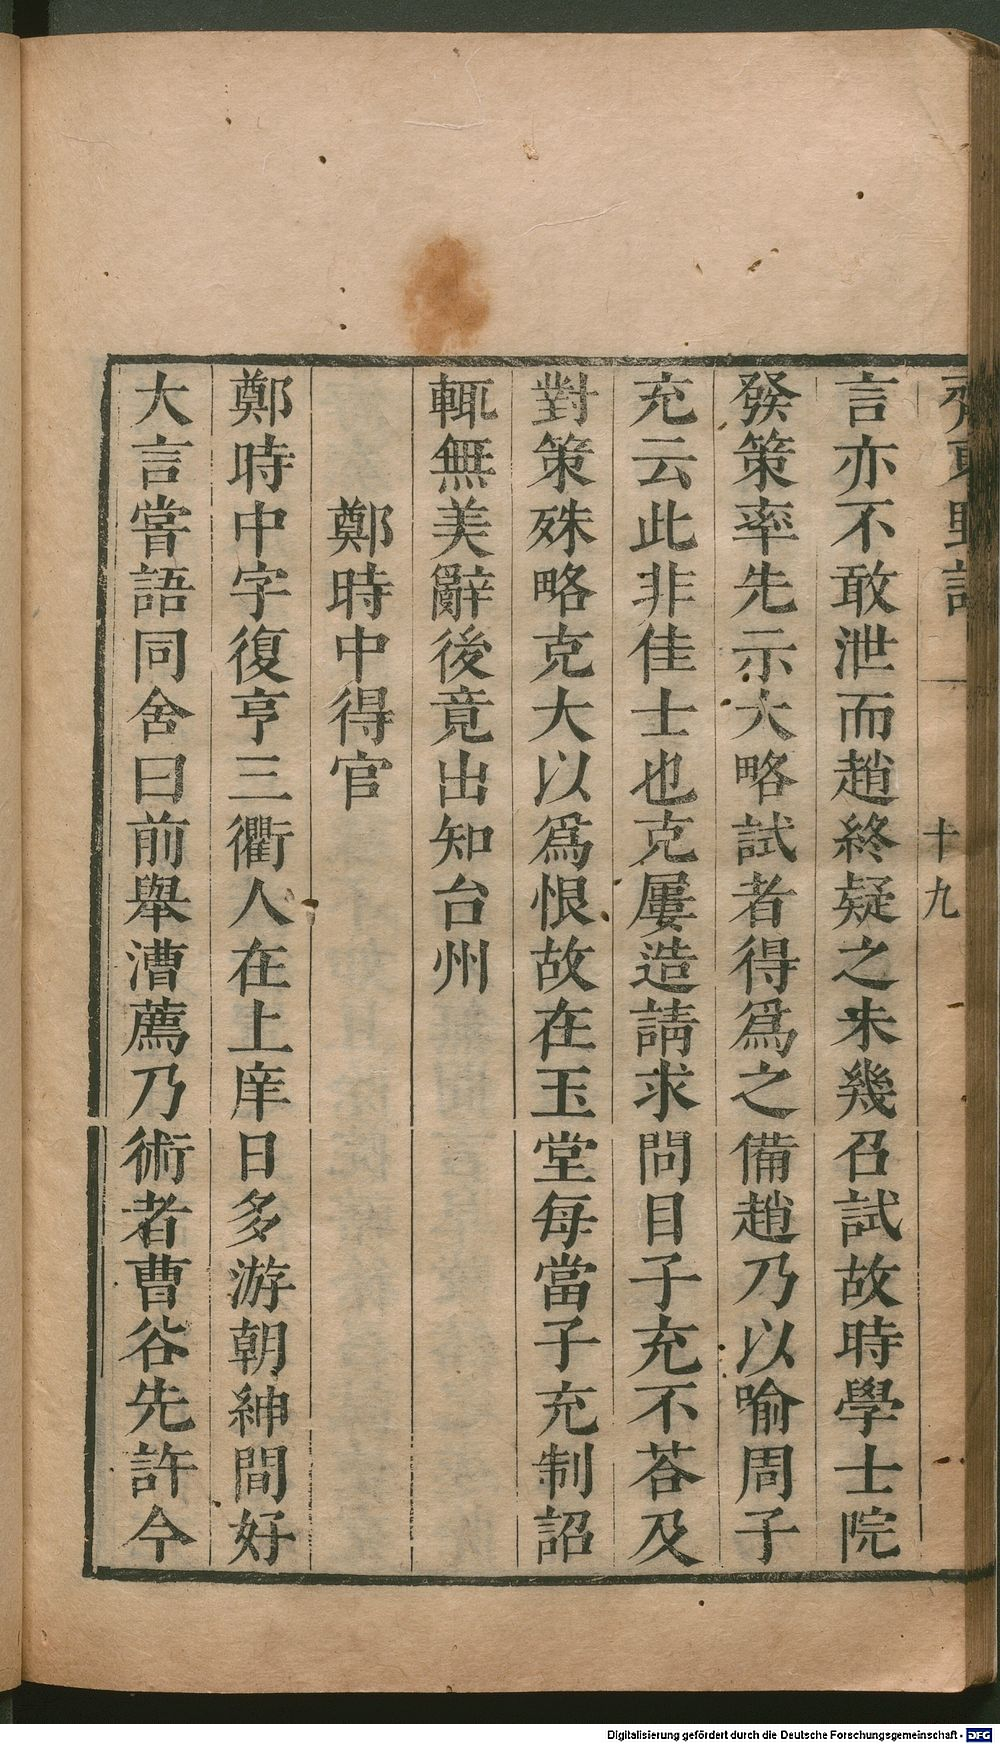 齊東野語
十九
言亦不敢泄而趙終疑之未幾召試故時學士院
發策率先示大略試者得爲之備趙乃以喻周子
充云此非佳士也克屢造請求問目子充不荅及
對策殊略克大以爲恨故在玉堂每當子充制詔
輒無美辭後竟出知台州
鄭時中得官
鄭時中字復亨三衢人在上庠日多游朝紳間好
大言嘗語同舍曰前舉漕薦乃術者曹谷先許今
Digitalisierung gefördert durch die Deutsche Forschungsgemeinschaft - DFG